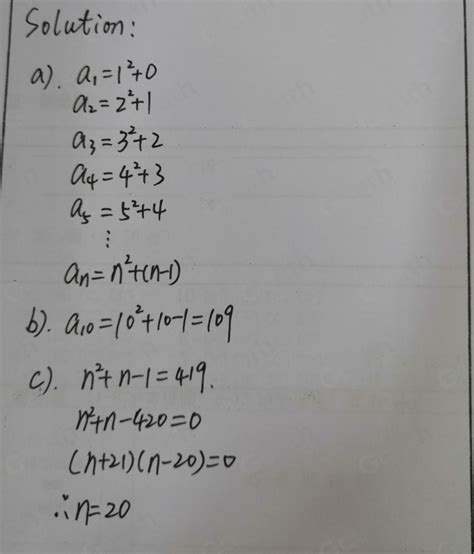 Solution:
a). a₁=1²+0
a₂=2²+1
a₃=3²+2
a₄=4²+3
a₅=5²+4
⋮
aₙ=n²+(n-1)
b). a₁₀=10²+10-1=109
c). n²+n-1=419.
n²+n-420=0
(n+21)(n-20)=0
∴n=20